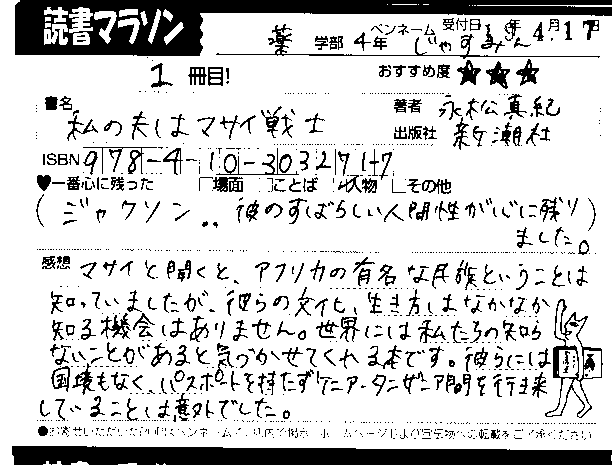 読書マラソン
薬 学部 4年 ペンネーム じゃすみん 受付日 9年 4月17日
1 冊目! おすすめ度 ★★★
書名 私の夫はマサイ戦士 著者 永松真紀
出版社 新潮社
ISBN 978-4-10-303271-7
♥一番心に残った □場面 □ことば ☑人物 □その他
(ジャクソン‥ 彼のすばらしい人間性が心に残り
ました。)
感想 マサイと聞くと、アフリカの有名な民族ということは
知っていましたが、彼らの文化、生き方はなかなか
知る機会はありません。世界には私たちの知ら
ないことがあると気づかせてくれる本です。彼らには
国境もなく、パスポートを持たずケニア・タンザニア間を行き来
していることは意外でした。
●お寄せいただいた カードは ペンネームで、店内で掲示、ホームページおよび宣伝物への転載をご了承ください